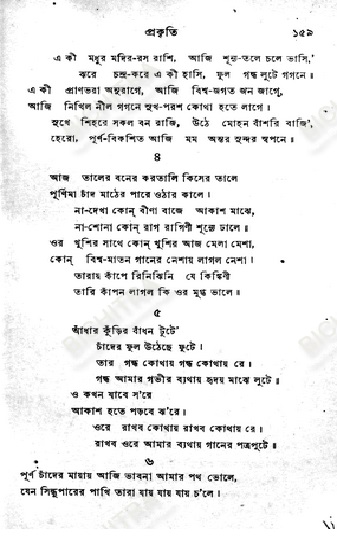 প্রকৃতি ১৫৯
এ কী মধুর মদির-রস রাশি, আজি শূন্য-তলে চলে ভাসি,
ঝরে চন্দ্র-করে এ কী হাসি, ফুল গন্ধ লুটে গগনে।
এ কী প্রাণভরা অনুরাগে, আজি বিশ্ব-জগত জন জাগে,
আজি নিখিল নীল গগনে সুখ-পরশ কোথা হতে লাগে।
সুখে শিহরে সকল বন রাজি, উঠে মোহন বাঁশরি বাজি,
হেরো, পূর্ণ-বিকশিত আজি মম অন্তর সুন্দর স্বপনে।
৪
আজ তালের বনের করতালি কিসের তালে
পূর্ণিমা চাঁদ মাঠের পারে ওঠার কালে।
না-দেখা কোন্ বীণা বাজে আকাশ মাঝে,
না-শোনা কোন্ রাগ রাগিণী শূন্যে ঢালে।
ওর খুশির সাথে কোন্ খুশির আজ মেলা মেশা,
কোন্ বিশ্ব-মাতন গানের নেশায় লাগল নেশা।
তারায় কাঁপে রিনিঝিনি যে কিঙ্কিণী
তারি কাঁপন লাগল কি ওর মুগ্ধ ভালে।
৫
আঁধার কুঁড়ির বাঁধন টুটে
চাঁদের ফুল উঠেছে ফুটে।
তার গন্ধ কোথায় গন্ধ কোথায় রে।
গন্ধ আমার গভীর ব্যথায় হৃদয় মাঝে লুটে।
ও কখন যাবে স'রে
আকাশ হতে পড়বে ঝ'রে।
ওরে রাখব কোথায় রাখব কোথায় রে।
রাখব ওরে আমার ব্যথায় গানের পত্রপুটে।
৬
পূর্ণ চাঁদের মায়ায় আজি ভাবনা আমার পথ ভোলে,
যেন সিন্ধুপারের পাখি তারা যায় যায় যায় চ'লে।